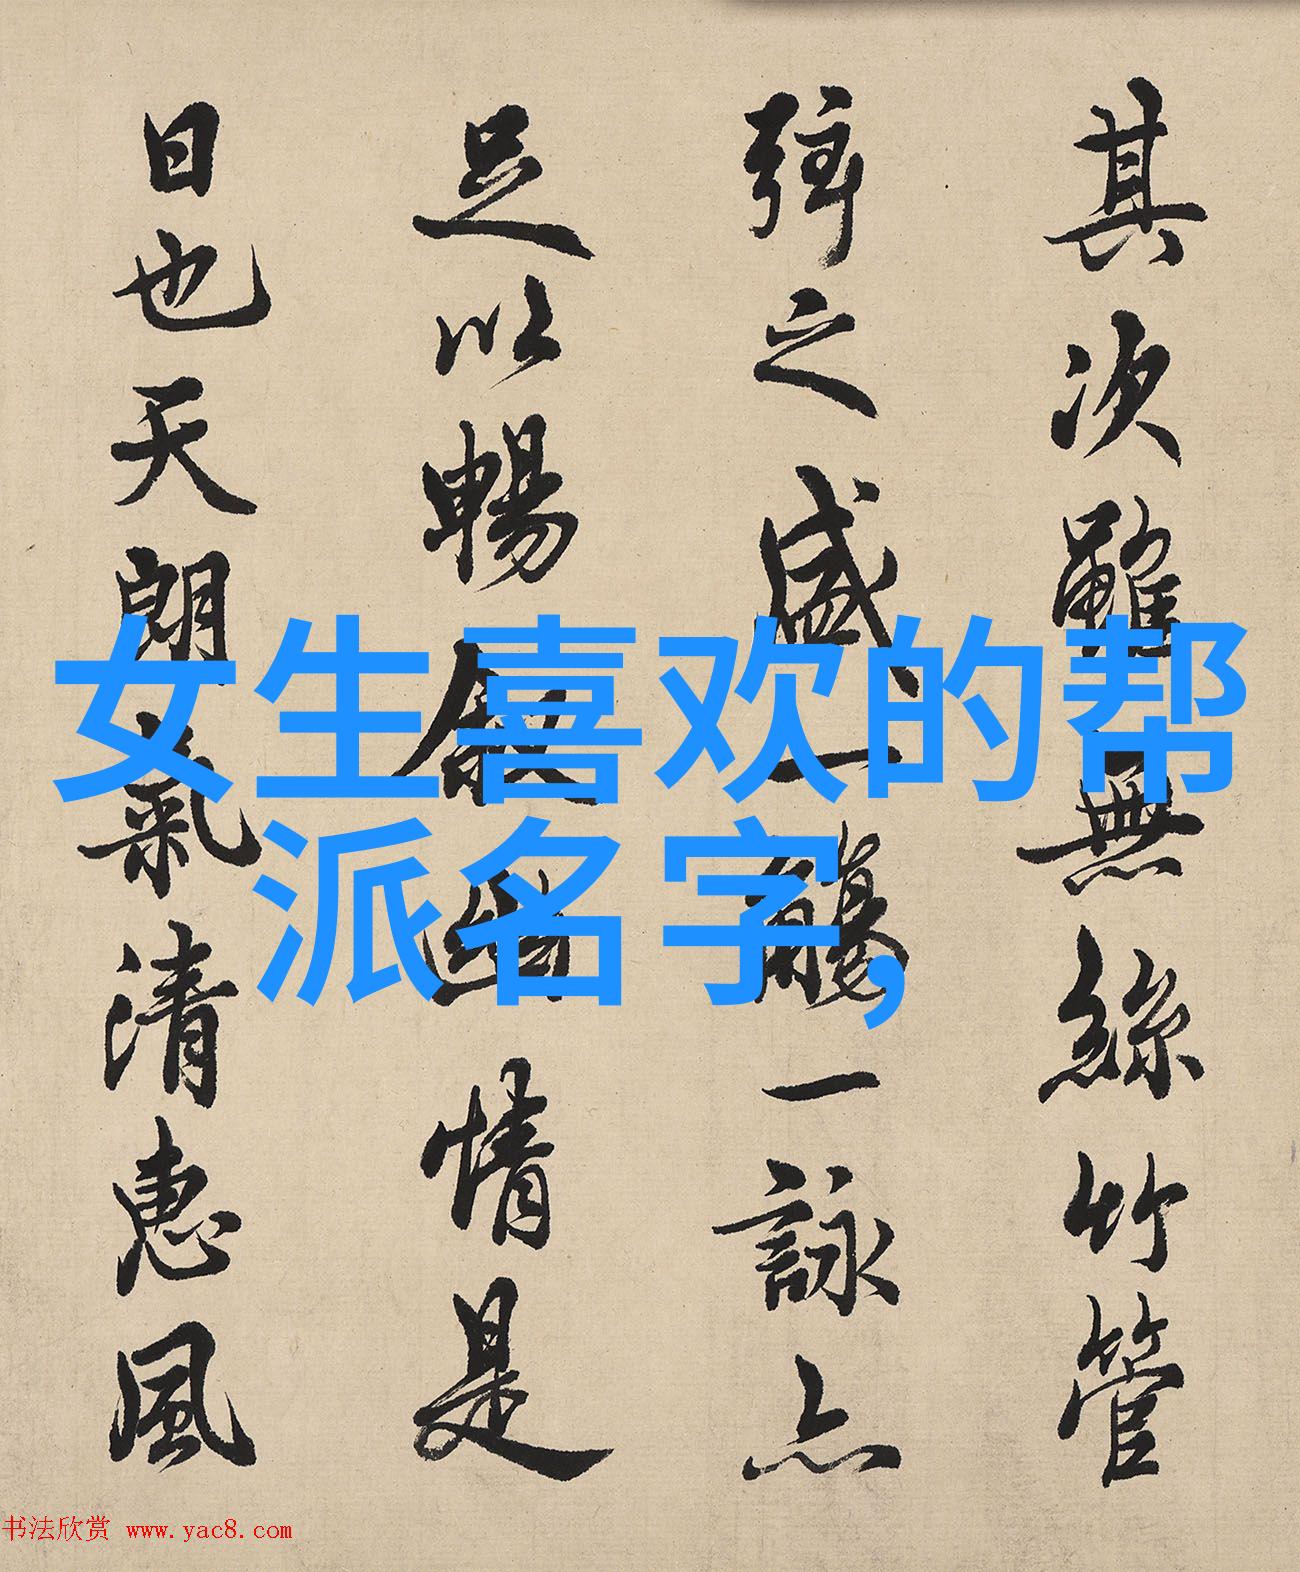 其次雖無絲竹管
弦之盛一觴一詠亦
足以暢敘幽情是
日也天朗氣清惠風
女生喜欢的帮
派名字,
书法欣赏 www.yac8.com